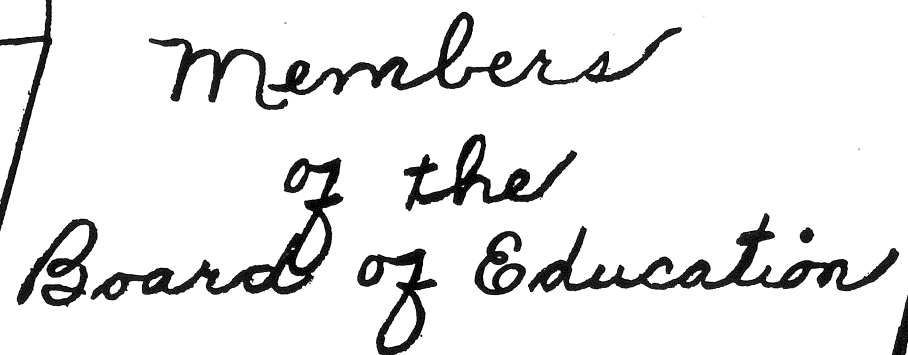 Members
of the
Board of Education